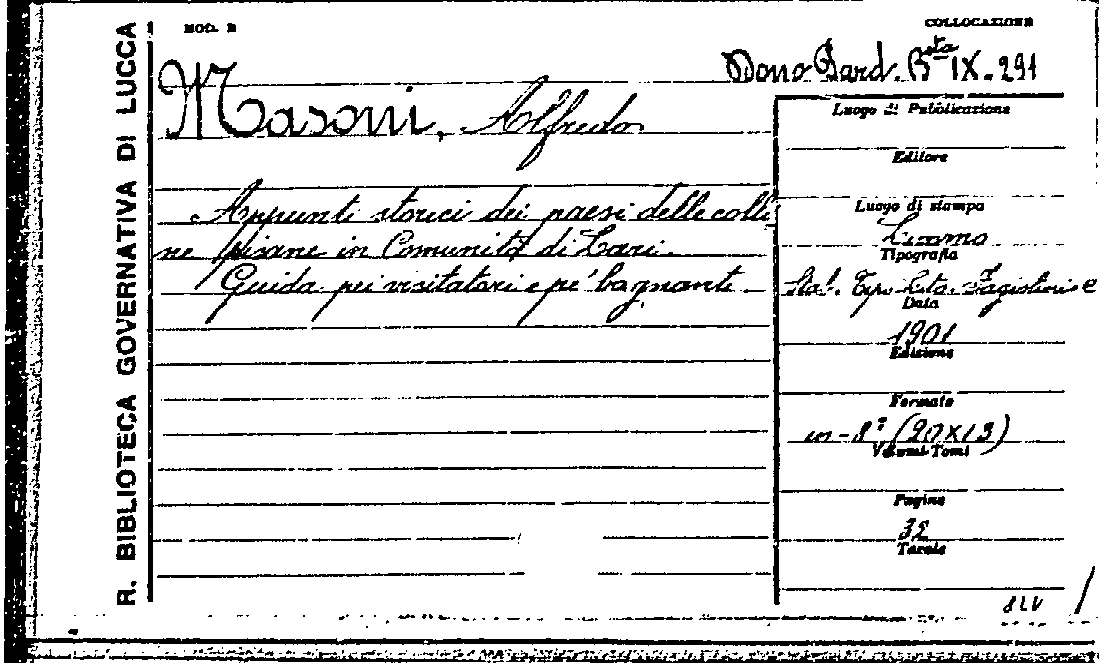 R. BIBLIOTECA GOVERNATIVA DI LUCCA
MOD. B
COLLOCAZIONE
Dono Bard. Bsta IX-291
Masoni, Alfredo
Appunti storici dei paesi delle colli
ne pisane in Comunità di Lari.
Guida pei visitatori e pe' bagnanti
Luogo di Pubblicazione
Editore
Luogo di stampa
Tipografia
Stab. Tipo Lito.
Data
1901
Edizione
Formato
in-8° (20x13)
Volumi-Tomi
Pagine
32
Tavole